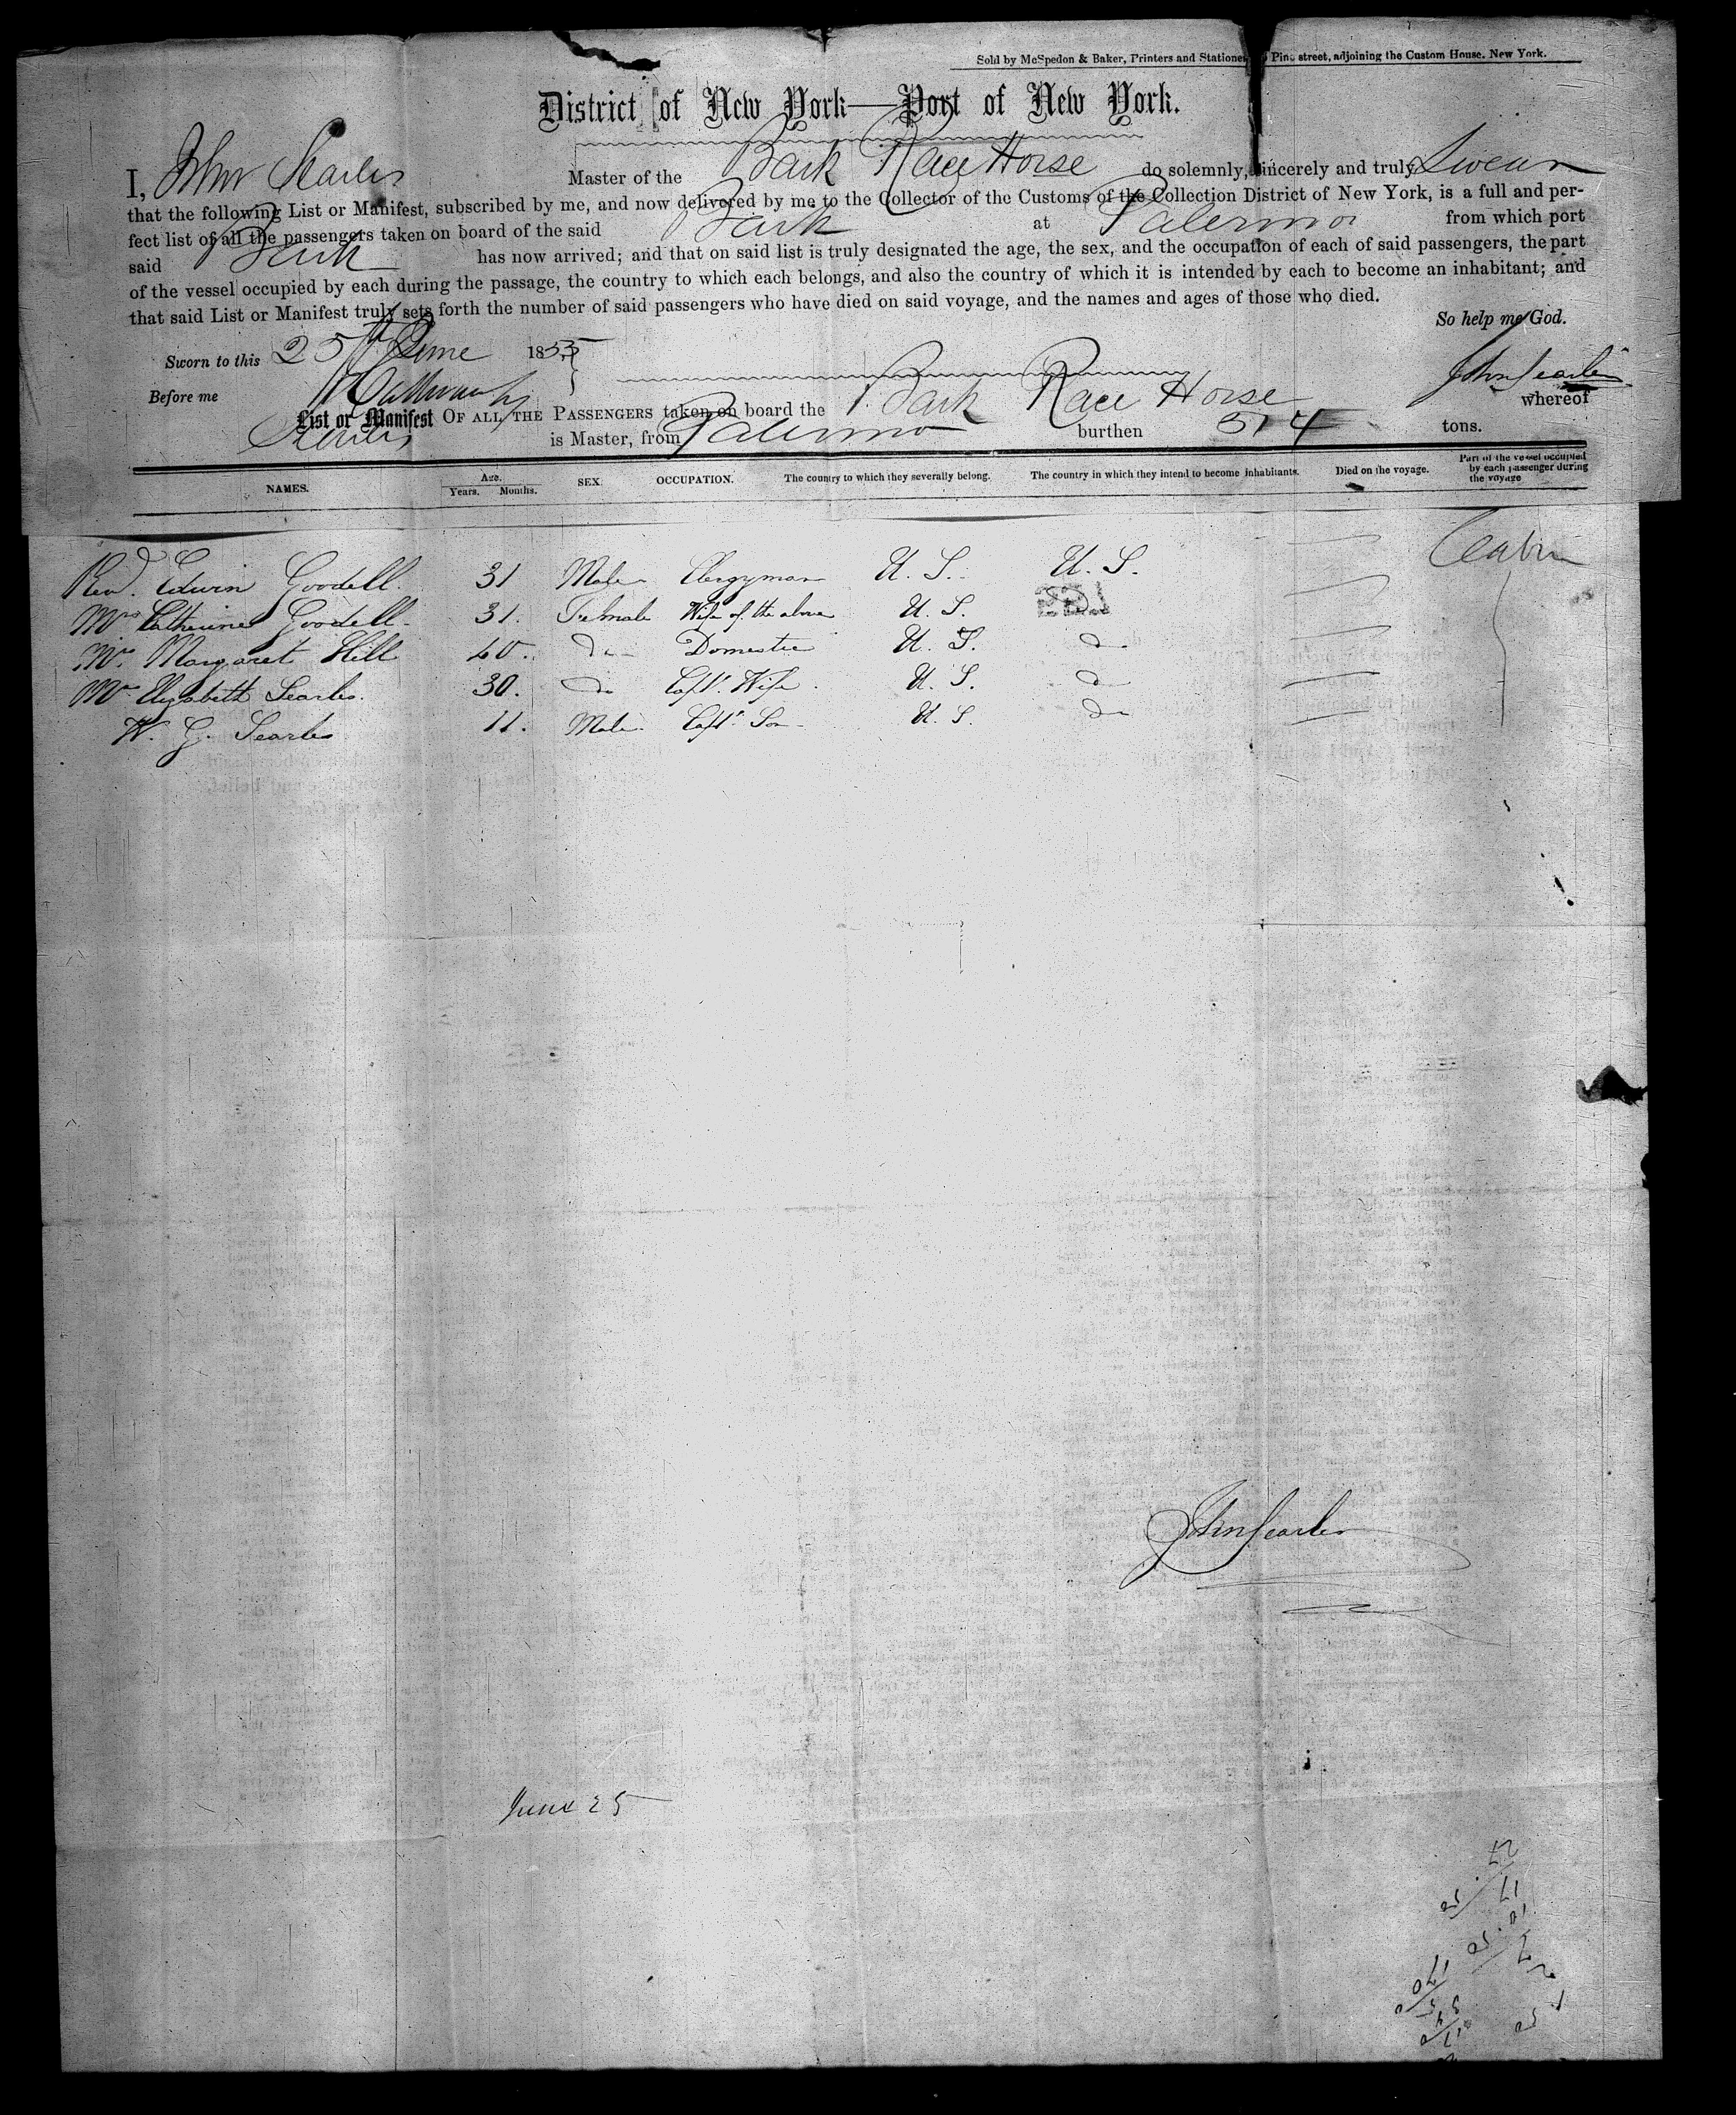 Sold by McSpedon & Baker, Printers and Stationers, Pine street, adjoining the Custom House. New York.
District of New York—Port of New York.
I, John Searles Master of the Bark Race Horse do solemnly, sincerely and truly Swear
that the following List or Manifest, subscribed by me, and now delivered by me to the Collector of the Customs of the Collection District of New York, is a full and per-
fect list of all the passengers taken on board of the said Bark at Palermo from which port
said Bark has now arrived; and that on said list is truly designated the age, the sex, and the occupation of each of said passengers, the part
of the vessel occupied by each during the passage, the country to which each belongs, and also the country of which it is intended by each to become an inhabitant; and
that said List or Manifest truly sets forth the number of said passengers who have died on said voyage, and the names and ages of those who died.
So help me God.
Sworn to this 25th June 1855
Before me John Searles
List or Manifest OF ALL THE PASSENGERS taken on board the Bark Race Horse whereof
Searles is Master, from Palermo burthen 514 tons.
NAMES. Age. Years. Months. SEX. OCCUPATION. The country to which they severally belong. The country in which they intend to become inhabitants. Died on the voyage. Part of the vessel occupied by each passenger during the voyage
Revd. Edwin Goodell. 31 Male Clergyman U. S. U. S. Cabin
Mrs Catherine Goodell 31. Female Wife of the above U. S.
Mrs. Margaret Hill 40. do Domestic U. S. do
Mrs Elizabeth Searles. 30. do Capt. Wife. U. S. do
W. G. Searles 11. Male Capt. Son U. S. do
John Searles
June 25